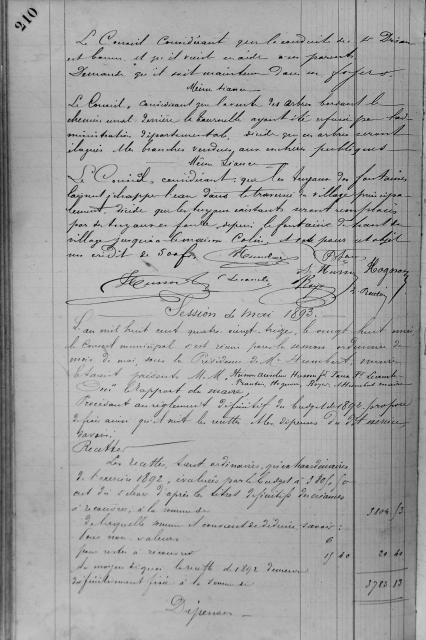 210
Le Conseil considérant que la conduite de
est bonne, et qu'il vient en aide à ses parents
Demande qu'il soit maintenu dans ses foyers
Même séance
Le Conseil, considérant que la vente des arbres bordant le
chemin rural derrière la ayant été refusé par l'ad
ministration départementale, décide que ces arbres seront
élagués et les branches vendues, aux enchères publiques
Même Séance
Le Conseil, considérant que les tuyaux des fontaines
laissent échapper l'eau dans la traversée du village principa-
lement, décide que les tuyaux existants seront remplacés
par des tuyaux en fonte depuis la fontaine du haut du
village jusqu'à la maison Colin, et vote pour cet objet
un crédit de 500 f
Humbert
Husson
Hognon
Session de mai 1893
L'an mil huit cent quatre vingt treize, le vingt huit mai,
le conseil municipal s'est réuni pour la session ordinaire de
mois de mai, sous la Présidence de Mr Humbert, maire
Etaient présents M.M. Husson
Hognon, Royer, et Humbert maire
le rapport du maire,
Procédant au règlement définitif du budget de 1892, propose
de fixer ainsi qu'il suit les recettes et les dépenses du dit exercice
savoir:
Recettes
Les recettes, tant ordinaires, qu'extraordinaires
de l'exercice 1892, évaluées par le budget à
ont dû s'élever d'après les titres définitifs des créances
à recouvrer, à la somme de 3804 53
de laquelle somme il convient de déduire, savoir:
Pour non valeurs
pour restes à recouvrer 40
20 40
au moyen de quoi la recette de 1892 demeure
définitivement fixée à la somme de 3783 13
Dépenses